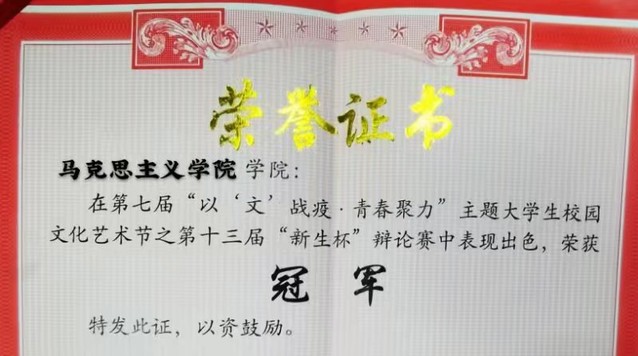 荣誉证书
马克思主义学院 学院：
在第七届“以‘文’战疫·青春聚力”主题大学生校园
文化艺术节之第十三届“新生杯”辩论赛中表现出色，荣获
冠 军
特发此证，以资鼓励。